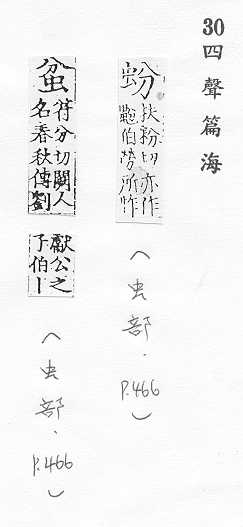 30四聲篇海
蚡
扶粉切亦作
鼢伯勞所作
(虫部.P.466)
蚠
符分切闕人
名春秋傳劉
獻公之
子伯丨
(虫部.P.466)